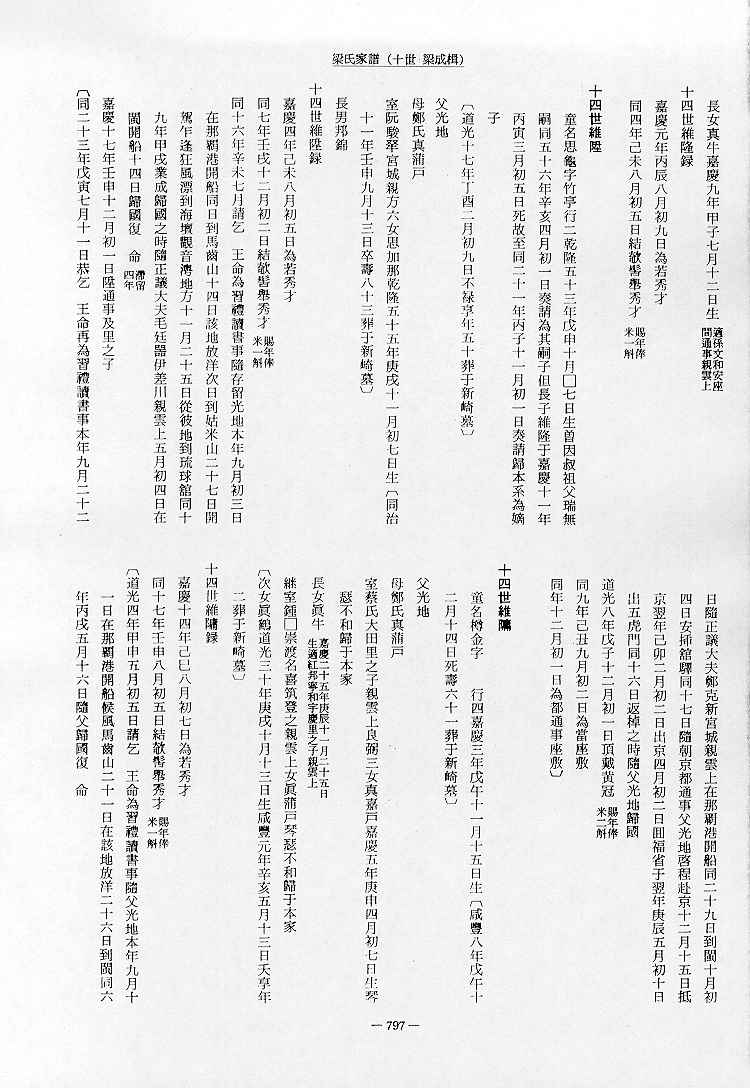 梁氏家譜（十世 梁成楫）
長女真牛嘉慶九年甲子七月十二日生 適係文和安座間通事親雲上
十四世維隆録
嘉慶元年丙辰八月初九日為若秀才
同四年己未八月初五日結欹髻擧秀才 賜年俸米一斛
十四世維陞
童名思龜字竹亭行二乾隆五十三年戊申十月□七日生曽因叔祖父瑞無
嗣同五十六年辛亥四月初一日奏請為其嗣子但長子維隆于嘉慶十一年
丙寅三月初五日死故至同二十一年丙子十一月初一日奏請歸本系為嫡
子
〔道光十七年丁酉二月初九日不禄享年五十葬于新崎墓〕
父光地
母鄭氏真蒲戸
室阮駿犖宮城親方六女思加那乾隆五十五年庚戌十一月初七日生〔同治
十一年壬申九月十三日卒壽八十三葬于新崎墓〕
長男邦錦
十四世維陞録
嘉慶四年己未八月初五日為若秀才
同七年壬戌十二月初二日結欹髻擧秀才 賜年俸米一斛
同十六年辛未七月請乞　王命為習禮讀書事隨存留光地本年九月初三日
在那覇港開船同日到馬齒山十四日該地放洋次日到姑米山二十七日開
駕乍逢狂風漂到海壇觀音澳地方十一月二十五日從彼地到琉球舘同十
九年甲戌業成歸國之時隨正議大夫毛廷器伊差川親雲上五月初四日在
閩開船十四日歸國復　命 滯留四年
嘉慶十七年壬申十二月初一日陞通事及里之子
〔同二十三年戊寅七月十一日恭乞　王命再為習禮讀書事本年九月二十二
日隨正議大夫鄭克新宮城親雲上在那覇港開船同二十九日到閩十月初
四日安挿舘驛同十七日隨朝京都通事父光地啓程赴京十二月十五日抵
京翌年己卯二月初二日出京四月初二日囬福省于翌年庚辰五月初十日
出五虎門同十六日返棹之時隨父光地歸國
道光八年戊子十二月初一日頂戴黄冠 賜年俸米二斛
同九年己丑九月初二日為當座敷
同年十二月初一日為都通事座敷〕
十四世維隯
童名樽金字　　行四嘉慶三年戊午十一月十五日生〔咸豐八年戊午十
二月十四日死壽六十一葬于新崎墓〕
父光地
母鄭氏真蒲戸
室蔡氏大田里之子親雲上良弼三女真嘉戸嘉慶五年庚申四月初七日生琴
瑟不和歸于本家
長女眞牛 嘉慶二十五年庚辰十一月二十五日生適紅邦寧和宇慶里之子親雲上
継室鍾□崇渡名喜筑登之親雲上女眞蒲戸琴瑟不和歸于本家
〔次女眞鶴道光三十年庚戌十月十三日生咸豐元年辛亥五月十三日夭享年
二葬于新崎墓〕
十四世維隯録
嘉慶十四年己巳八月初七日為若秀才
同十七年壬申八月初五日結欹髻擧秀才 賜年俸米一斛
〔道光四年甲申五月初五日請乞　王命為習禮讀書事隨父光地本年九月十
一日在那覇港開船候風馬齒山二十一日在該地放洋二十六日到閩同六
年丙戌五月十六日隨父歸國復　命
— 797 —